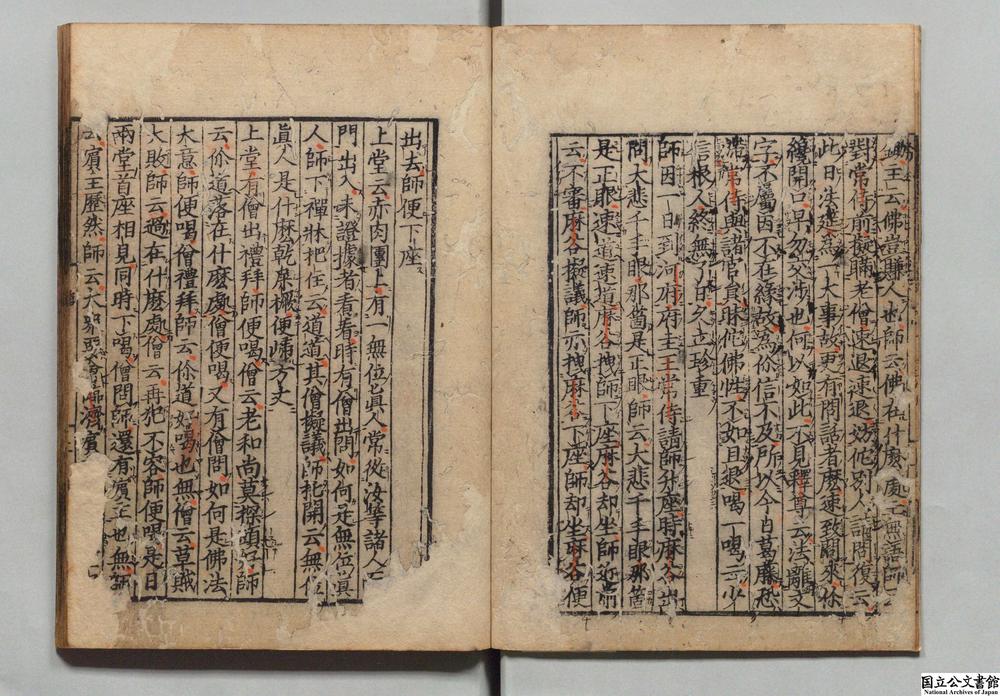 主王云佛豈賺人也師云佛在什麼處主無語師云
對常侍前擬瞞老僧速退速退妨他別人請問復云
此日法筵為一大事故更有問話者麼速致問來你
纔開口早勿交涉也何以如此不見釋尊云法離文
字不屬因不在緣故為你信不及所以今日葛藤恐
滯常侍與諸官員昧他佛性不如且退喝一喝云少
信根人終無了日久立珍重
師因一日到河府府主王常侍請師升座時麻谷出
問大悲千手眼那箇是正眼師云大悲千手眼那箇
是正眼速道速道麻谷拽師下座麻谷却坐師近前
云不審麻谷擬議師亦拽麻谷下座師却坐麻谷便
出去師便下座
上堂云赤肉團上有一無位真人常從汝等諸人
門出入未證據者看看時有僧出問如何是無位真
人師下禪牀把住云道道其僧擬議師托開云無位
真人是什麼乾屎橛便歸方丈
上堂有僧出禮拜師便喝僧云老和尚莫探頭好師
云你道落在什麼處僧便喝又有僧問如何是佛法
大意師便喝僧禮拜師云你道好喝也無僧云草賊
大敗師云過在什麼處僧云再犯不容師便喝是日
兩堂首座相見同時下喝僧問師還有賓主也無師
云賓主歷然師云大眾要會臨濟賓
国立公文書館
National Archives of Japan